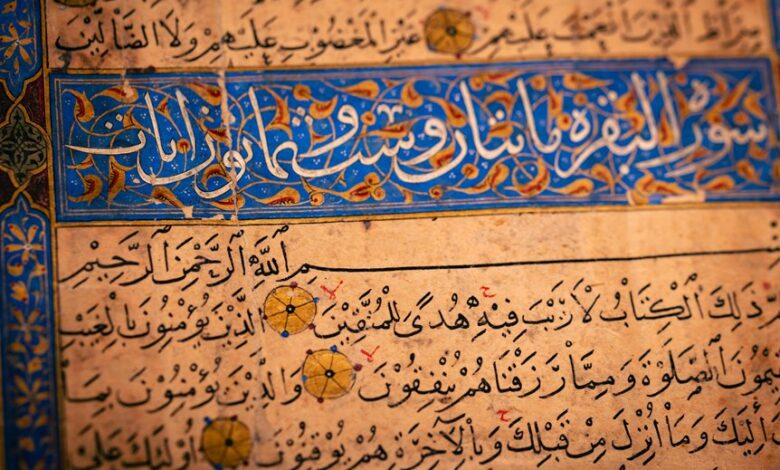 صِرَاطَ الَّذِينَ أَنْعَمْتَ عَلَيْهِمْ غَيْرِ الْمَغْضُوبِ عَلَيْهِمْ وَلَا الضَّالِّينَ
سورة البقرة مايتان وست وثمانون ايات
اللَّهِ الرَّحْمَٰنِ الرَّحِيمِ
ذَٰلِكَ الْكِتَابُ لَا رَيْبَ فِيهِ هُدًى لِلْمُتَّقِينَ الَّذِينَ يُؤْمِنُونَ بِالْغَيْبِ
الصَّلَوٰةَ وَمِمَّا رَزَقْنَاهُمْ يُنْفِقُونَ وَالَّذِينَ يُؤْمِنُونَ بِمَا
إِلَيْكَ وَمَا أُنْزِلَ مِنْ قَبْلِكَ وَبِالْآخِرَةِ هُمْ يُوقِنُونَ أُولَئِكَ عَلَىٰ